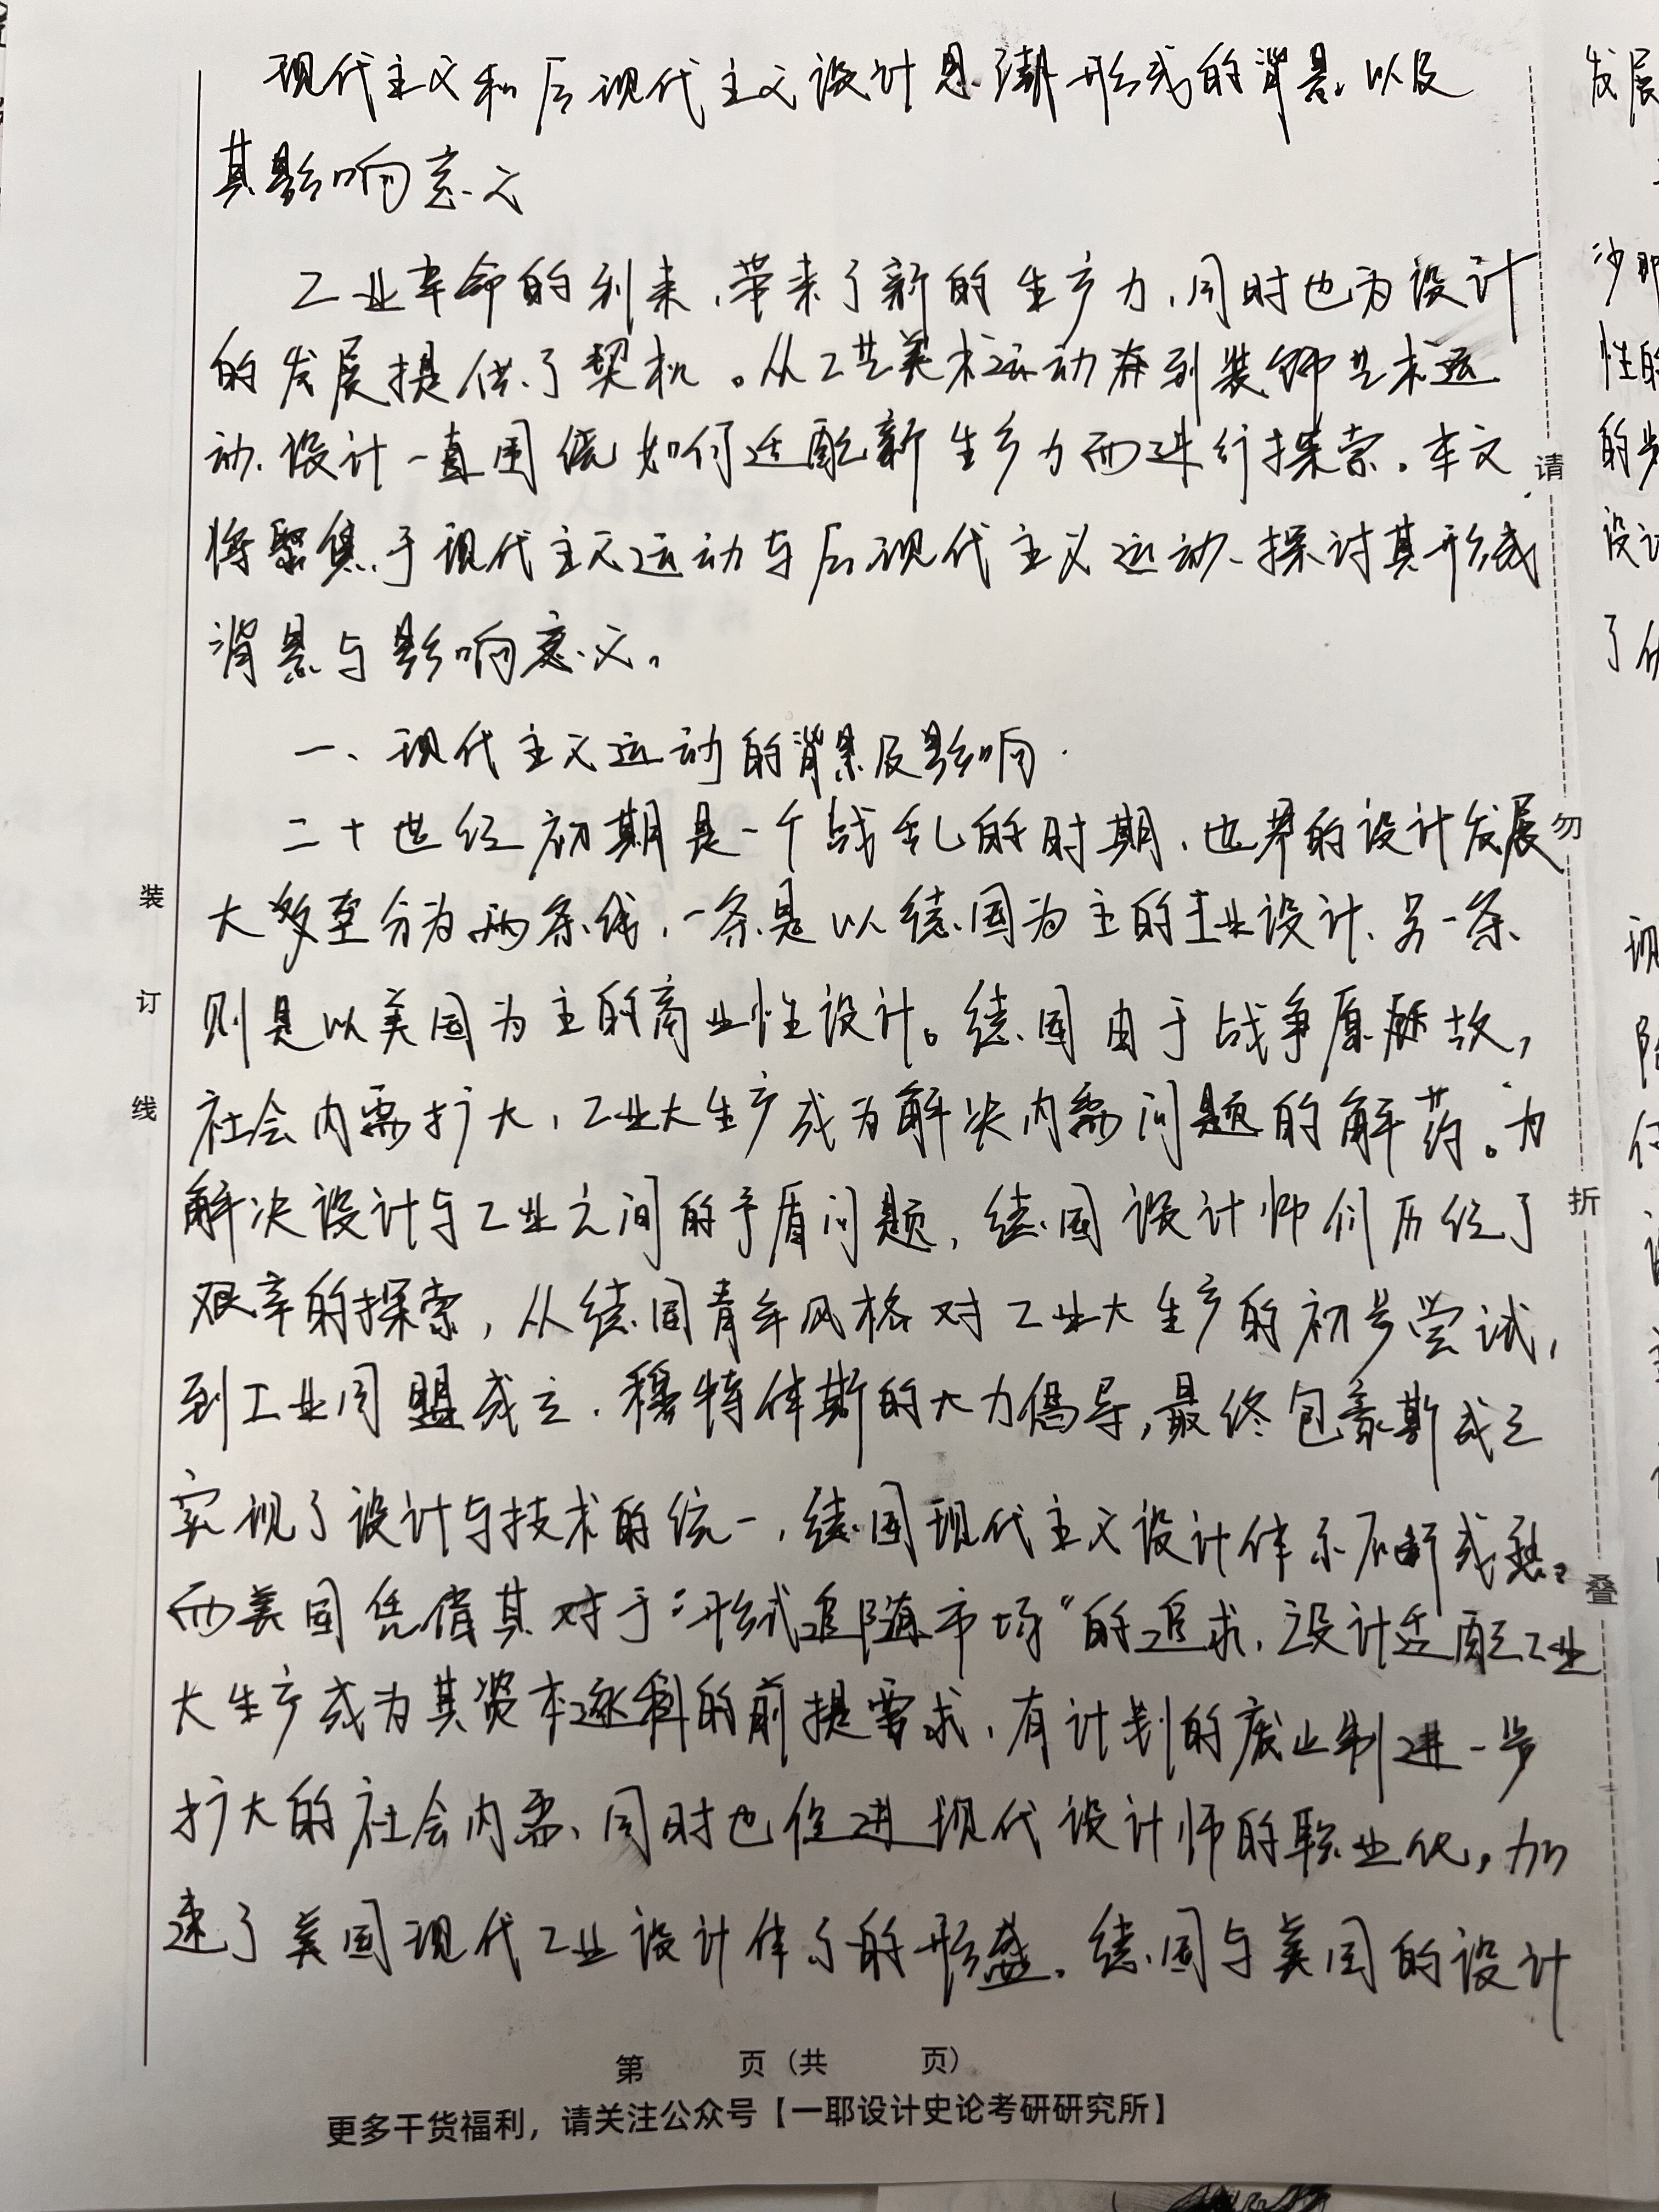 现代主义和后现代主义设计思潮形成的背景以及
其影响意义
工业革命的到来，带来了新的生产力，同时也为设计
的发展提供了契机。从工艺美术运动奔到装饰艺术运
动、设计一直围绕如何适配新生产力而进行探索。本文
将聚焦于现代主义运动与后现代主义运动、探讨其形成
背景与影响意义。
一、现代主义运动的背景及影响
二十世纪初期是一个战乱的时期，世界的设计发展
大多至分为两条线，一条是以德国为主的工业设计、另一条
则是以美国为主的商业性设计。德国由于战争原故，
社会内需扩大，工业大生产成为解决内需问题的解药。为
解决设计与工业之间的矛盾问题，德国设计师们历经了
艰辛的探索，从德国青年风格对工业大生产的初步尝试，
到工业同盟成立、穆特休斯的大力倡导，最终包豪斯成立
实现了设计与技术的统一，德国现代主义设计体系不断成熟。
而美国凭借其对于“形式追随市场”的追求，设计适配工业
大生产成为其资本逐利的前提要求，有计划的废止制进一步
扩大的社会内需、同时也促进现代设计师的职业化，加
速了美国现代工业设计体系的形盛。德国与美国的设计
装
订
线
请
勿
折
叠
发展
性的
设计
第 页（共 页）
更多干货福利，请关注公众号【一耶设计史论考研研究所】